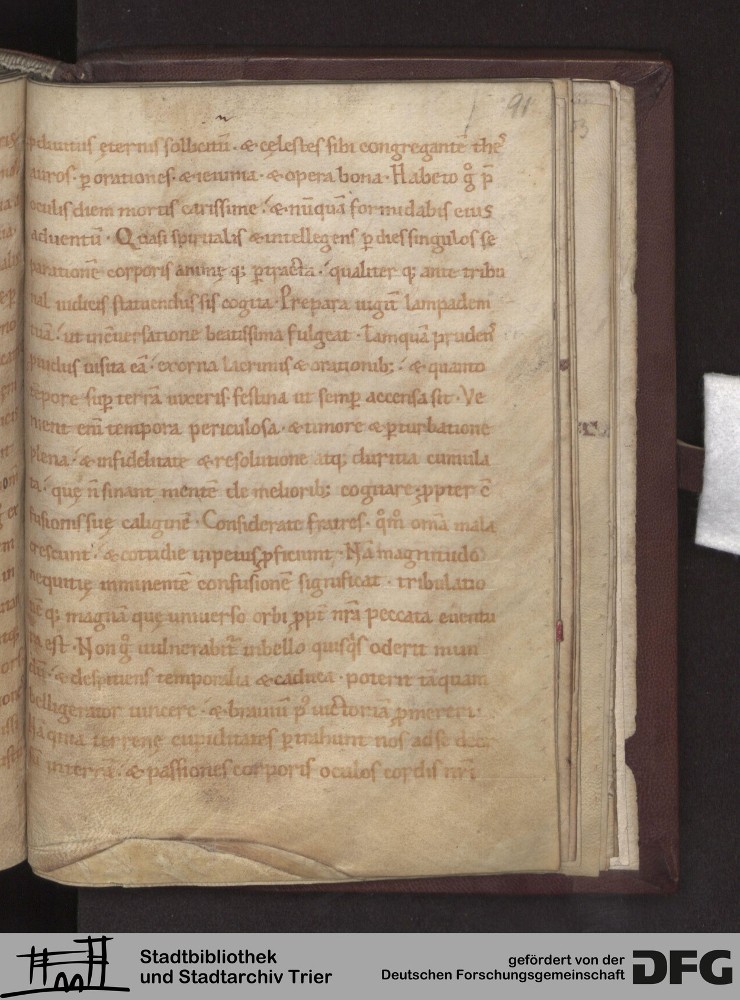 91
p diuitiis ęternis sollicitū · & cęlestes sibi congregantē the
auros · ꝑ orationes · & ieiunia · & opera bona · Habeto g̊ p̄
oculis diem mortis carissime · & nūquā formidabis eius
aduentū · Quasi spiritalis & intellegens ꝑ dies singulos se
parationē corporis animę q; ꝑtracta · qualiter q; ante tribu
nal iudicis statuendus sis cogita · Prepara uigil lampadem
tuā · ut in cuersatione beatissima fulgeat · Tamquā pruden
uisita eā · exorna lacrimis & orationib; · & quanto
tēpore suꝑ terrā uixeris festina ut semꝑ accensa sit · Ve
nient enī tempora periculosa · & timore & ꝑturbatione
plena · & infidelitate & resolutione atq; duritia cumula
ta · quę n̄ sinant mentē de meliorib; cogitare · ꝓpter c̄
fusionis suę caliginē · Considerate fratres · qm̄ omā mala
crescunt · & cottidie in peius ꝓficiunt · Nā magnitudo
nequitię imminentē confusionē significat · tribulatio
nē q; magnā que uniuerso orbi ꝓpt̄ nr̄a peccata euentu
ra est · Non g̊ uulnerabit̄ in bello quisq̇s oderit mun
dū · & despiciens temporalia & caduca · poterit tāquam
belligerator uincere · & brauiū p̊ uictoriā ꝓmereri ·
Nā quia terrenę cupiditates ꝑtrahunt nos ad se
in terrā · & passiones corporis oculos cordis nr̄i
Stadtbibliothek
und Stadtarchiv Trier
gefördert von der
Deutschen Forschungsgemeinschaft
DFG